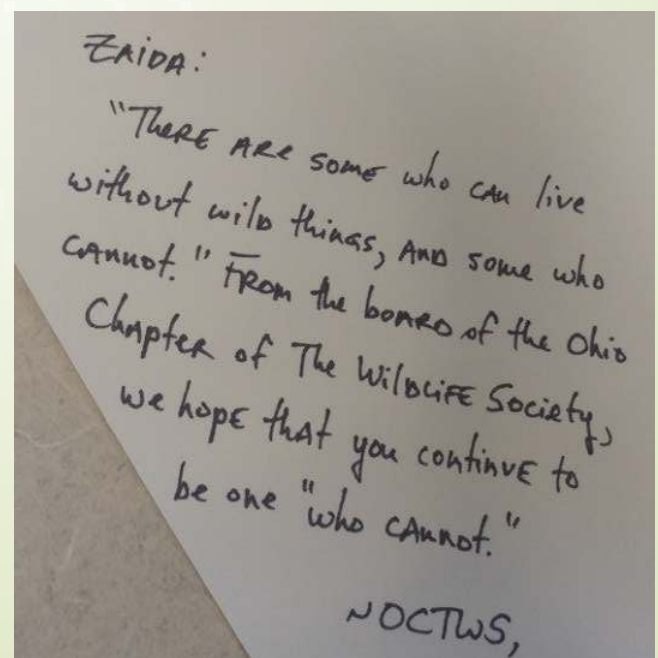 ZAIDA:
"THERE ARE SOME who CAN live
without wilD things, AND some who
CANNOT." FROM the boARD of the Ohio
ChApteR of The WilDLIFE Society,
we hopE thAt you continuE to
be one "who CANNOT."
~OCTWS,